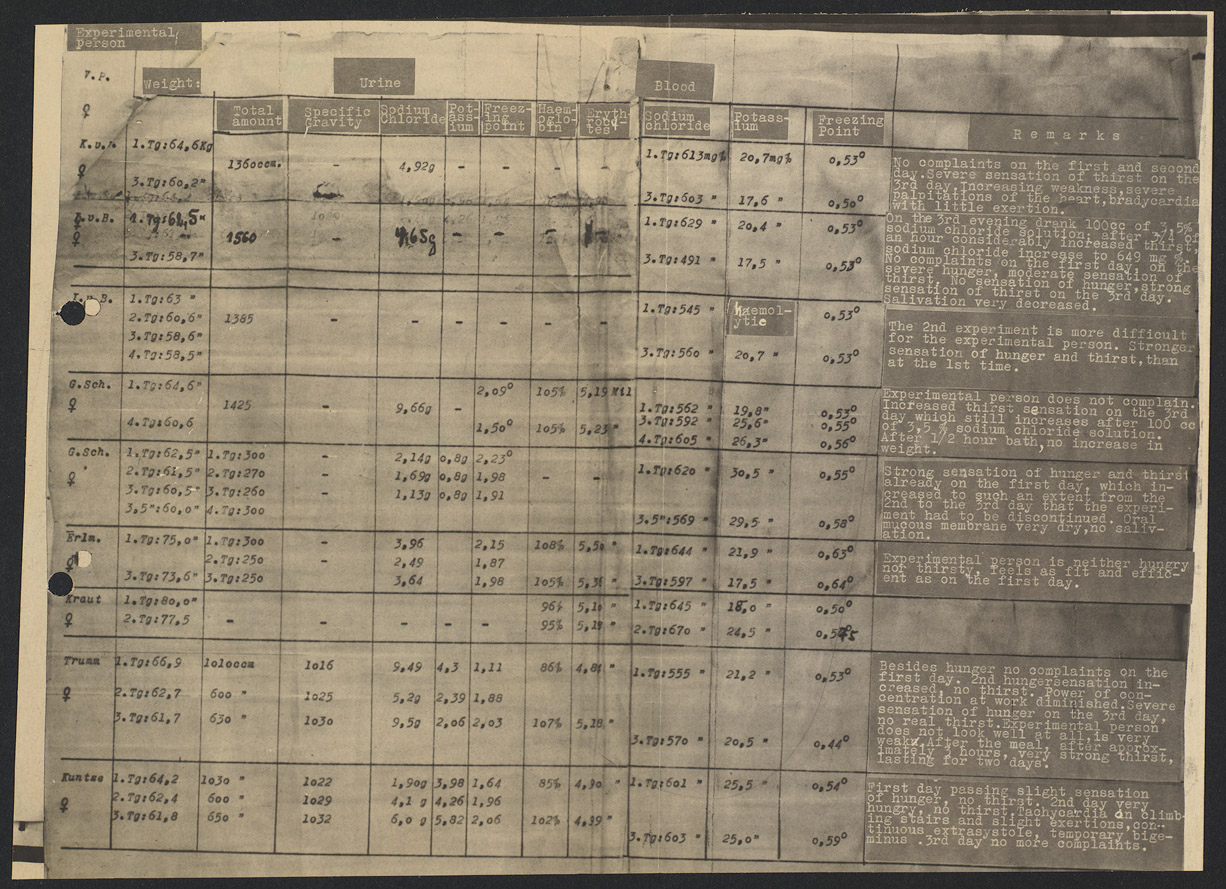 Experimental
person
V.P. Weight: Urine Blood
♀ Total amount Specific Gravity Sodium Chloride Pot-ass-ium Freez-ing point Haem-oglo-bin Eryth-tes Sodium chloride Potass-ium Freezing Point Remarks
1.Tg:64,6Kg 1360ccm. - 4,92g - - - - 1.Tg:613mg% 20,7mg% 0,53°
♀ 3.Tg:60,2" 3.Tg:603 " 17,6 " 0,50°
No complaints on the first and second
day.Severe sensation of thirst on the
3rd day.Increasing weakness,severe
palpitations of the heart,bradycardia
with little exertion.
v.B. 1.Tg:61,5" 1560 - 4,65g - - - - 1.Tg:629 " 20,4 " 0,53°
♀ 3.Tg:58,7" 3.Tg:491 " 17,5 " 0,53°
On the 3rd evening drank 100cc of
sodium chloride solution; after of
an hour considerably increased thirst,
sodium chloride increase to 649 mg %.
No complaints on the first day, on the
severe hunger, moderate sensation of
thirst. No sensation of hunger,strong
sensation of thirst on the 3rd day.
Salivation very decreased.
B. 1.Tg:63 " 1.Tg:545 " Haemol-ytic 0,53°
2.Tg:60,6" 1385 - - - - - -
3.Tg:58,6"
4.Tg:58,5" 3.Tg:560 " 20,7 " 0,53°
The 2nd experiment is more difficult
for the experimental person. Stronger
sensation of hunger and thirst,than
at the 1st time.
G.Sch. 1.Tg:64,6" 2,09° 105% 5,19 Mil
♀ 1425 - 9,66g - 1.Tg:562 " 19,8" 0,53°
3.Tg:592 " 25,6" 0,55°
4.Tg:60,6 1,50° 105% 5,23" 4.Tg:605 " 26,3" 0,56°
Experimental person does not complain.
Increased thirst sensation on the 3rd
day which still increases after 100 cc
of 3,5 % sodium chloride solution.
After 1/2 hour bath,no increase in
weight.
G.Sch. 1.Tg:62,5" 1.Tg:300 - 2,14g 0,8g 2,23°
♀ 2.Tg:61,5" 2.Tg:270 - 1,69g 0,8g 1,98 - - 1.Tg:620 " 30,5 " 0,55°
3.Tg:60,5" 3.Tg:260 - 1,13g 0,8g 1,91
3,5":60,0" 4.Tg:300 3.5":569 " 29,5 " 0,58°
Strong sensation of hunger and thirst
already on the first day, which in-
creased to such an extent from the
2nd to the 3rd day that the experi-
ment had to be discontinued. Oral
mucous membrane very dry,no saliv-
ation.
Erlm. 1.Tg:75,0" 1.Tg:300 3,96 2,15 108% 5,50 " 1.Tg:644 " 21,9 " 0,63°
2.Tg:250 - 2,49 1,87
3.Tg:73,6" 3.Tg:250 3,64 1,98 105% 5,38 " 3.Tg:597 " 17,5 " 0,64°
Experimental person is neither hungry
nor thirsty, feels as fit and effic-
ent as on the first day.
Kraut 1.Tg:80,0" 96% 5,10 " 1.Tg:645 " 18,0 " 0,50°
♀ 2.Tg:77,5 - - - - - 95% 5,19 " 2.Tg:670 " 24,5 "
Trumm 1.Tg:66,9 1010ccm 1016 9,49 4,3 1,11 86% 4,84 " 1.Tg:555 " 21,2 " 0,53°
♀ 2.Tg:62,7 600 " 1025 5,2g 2,39 1,88
3.Tg:61,7 630 " 1030 9,5g 2,06 2,03 107% 5,18 " 3.Tg:570 " 20,5 " 0,44°
Besides hunger no complaints on the
first day. 2nd hungersensation in-
creased, no thirst. Power of con-
centration at work diminished.Severe
sensation of hunger on the 3rd day,
no real thirst.Experimental person
does not look well at all,is very
weak.After the meal, after approx-
imately 3 hours, very strong thirst,
lasting for two days.
Kuntze 1.Tg:64,2 1030 " 1022 1,90g 3,98 1,64 85% 4,90 " 1.Tg:601 " 25,5 " 0,54°
♀ 2.Tg:62,4 600 " 1029 4,1 g 4,26 1,96
3.Tg:61,8 650 " 1032 6,0 g 5,82 2,06 102% 4,99" 3.Tg:603 " 25,0" 0,59°
First day passing slight sensation
of hunger, no thirst. 2nd day very
hungry, no thirst,Tachycardia on climb-
ing stairs and slight exertions,con-
tinuous extrasystole, temporary bige-
minus .3rd day no more complaints.